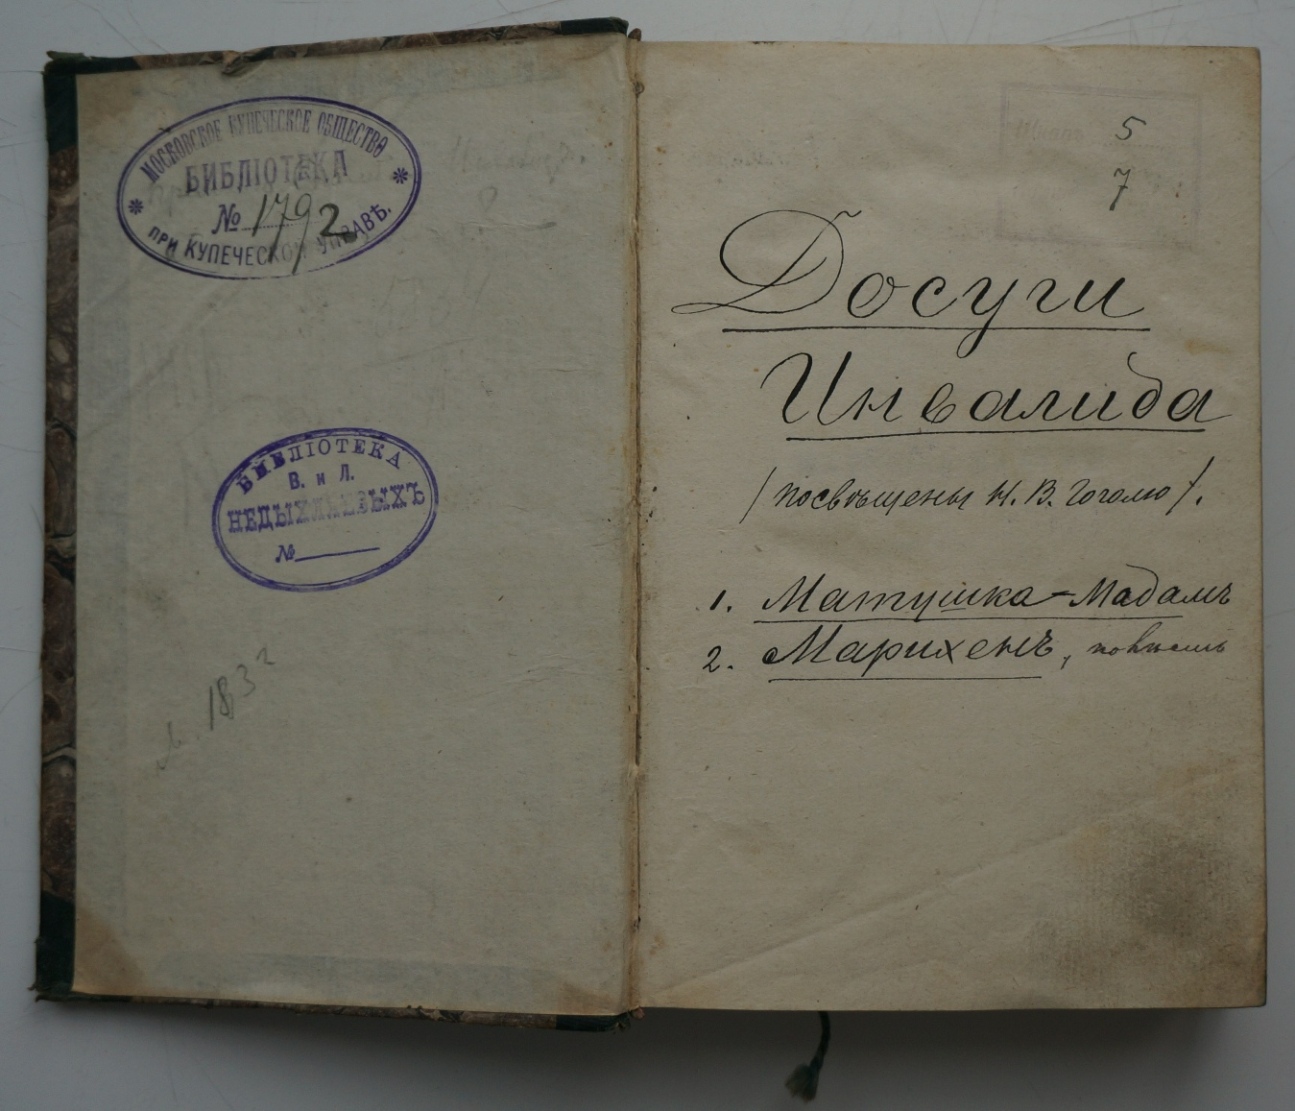 МОСКОВСКОЕ КУПЕЧЕСКОЕ ОБЩЕСТВО
БИБЛІОТЕКА
№ 1792
ПРИ КУПЕЧЕСКОЙ УПРАВѢ.
БИБЛІОТЕКА
В. и Л.
НЕДЫХЛЯЕВЫХЪ
№
183
5
7
Досуги
Инвалида
(посвѣщены Н. В. Гоголю).
1. Матушка-Мадамъ
2. Марихенъ, повѣсть